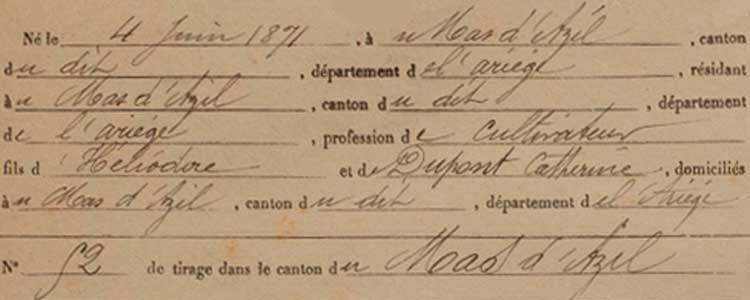 Né le 4 Juin 1871, à u Mas d'Azil, canton
du dit, département de l'ariège, résidant
àu Mas d'Azil, canton du dit, département
de l'ariège, profession de Cultivateur
fils d'Héliodore et de Dupont Catherine, domiciliés
àu Mas d'Azil, canton du dit, département de l'Ariège
N° 52 de tirage dans le canton du Mas d'Azil